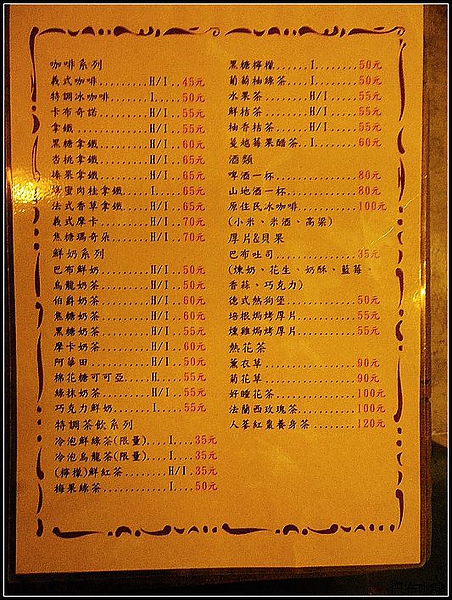 咖啡系列
義式咖啡.........H/I..45元
特調冰咖啡.......I....50元
卡布奇諾.........H/I..55元
拿鐵.............H/I..55元
黑糖拿鐵.........H/I..60元
杏桃拿鐵.........H/I..65元
榛果拿鐵.........H/I..65元
蜂蜜肉桂拿鐵.....I....65元
法式香草拿鐵.....H/I..65元
義式摩卡.........H/I..70元
焦糖瑪奇朵.......H/I..70元
鮮奶系列
巴布鮮奶.........H/I..50元
烏龍奶茶.........H/I..50元
伯爵奶茶.........H/I..60元
焦糖奶茶.........H/I..60元
黑糖奶茶.........H/I..55元
摩卡奶茶.........H/I..60元
阿華田...........H/I..50元
棉花糖可可亞.....H....55元
綠抹奶茶.........H/I..55元
巧克力鮮奶.......I....55元
特調茶飲系列
冷泡鮮綠茶(限量)....I....35元
冷泡烏龍茶(限量)....I....35元
(檸檬)鮮紅茶........H/I..35元
梅果綠茶............I....50元
黑糖檸檬......I......50元
葡萄柚綠茶....I......50元
水果茶........H/I....55元
鮮桔茶........H/I....55元
柚香桔茶......H/I....55元
蔓越莓果醋茶..I......60元
酒類
啤酒一杯.............80元
山地酒一杯...........80元
原住民冰咖啡.........100元
(小米、米酒、高粱)
厚片&貝果
巴布吐司.............35元
(煉奶、花生、奶酥、藍莓、
香蒜、巧克力)
德式熱狗堡...........50元
培根焗烤厚片.........55元
燻雞焗烤厚片.........55元
熱花茶
薰衣草...............90元
菊花草...............90元
好睡花茶.............100元
法蘭西玫瑰茶.........100元
人蔘紅棗養身茶 ......120元